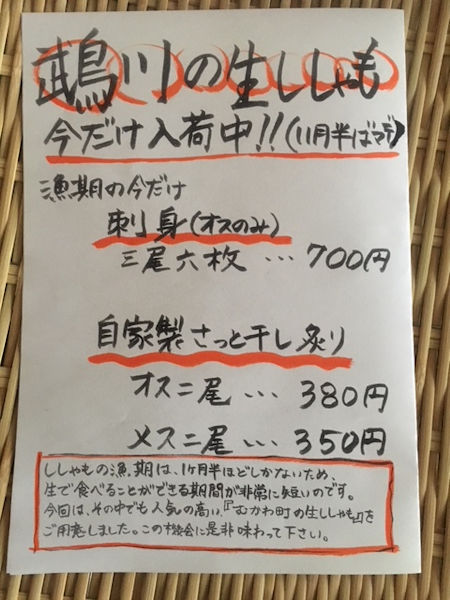 鵡川の生ししゃも
今だけ入荷中!!(11月半ばマデ)
漁期の今だけ
刺身(オスのみ)
三尾六枚…700円
自家製さっと干し炙り
オス二尾…380円
メス二尾…350円
ししゃもの漁期は、1ヶ月半ほどしかないため、
生で食べることができる期間が非常に短いのです。
今回は、その中でも人気の高い、『むかわ町の生ししゃも』を
ご用意しました。この機会に是非味わって下さい。